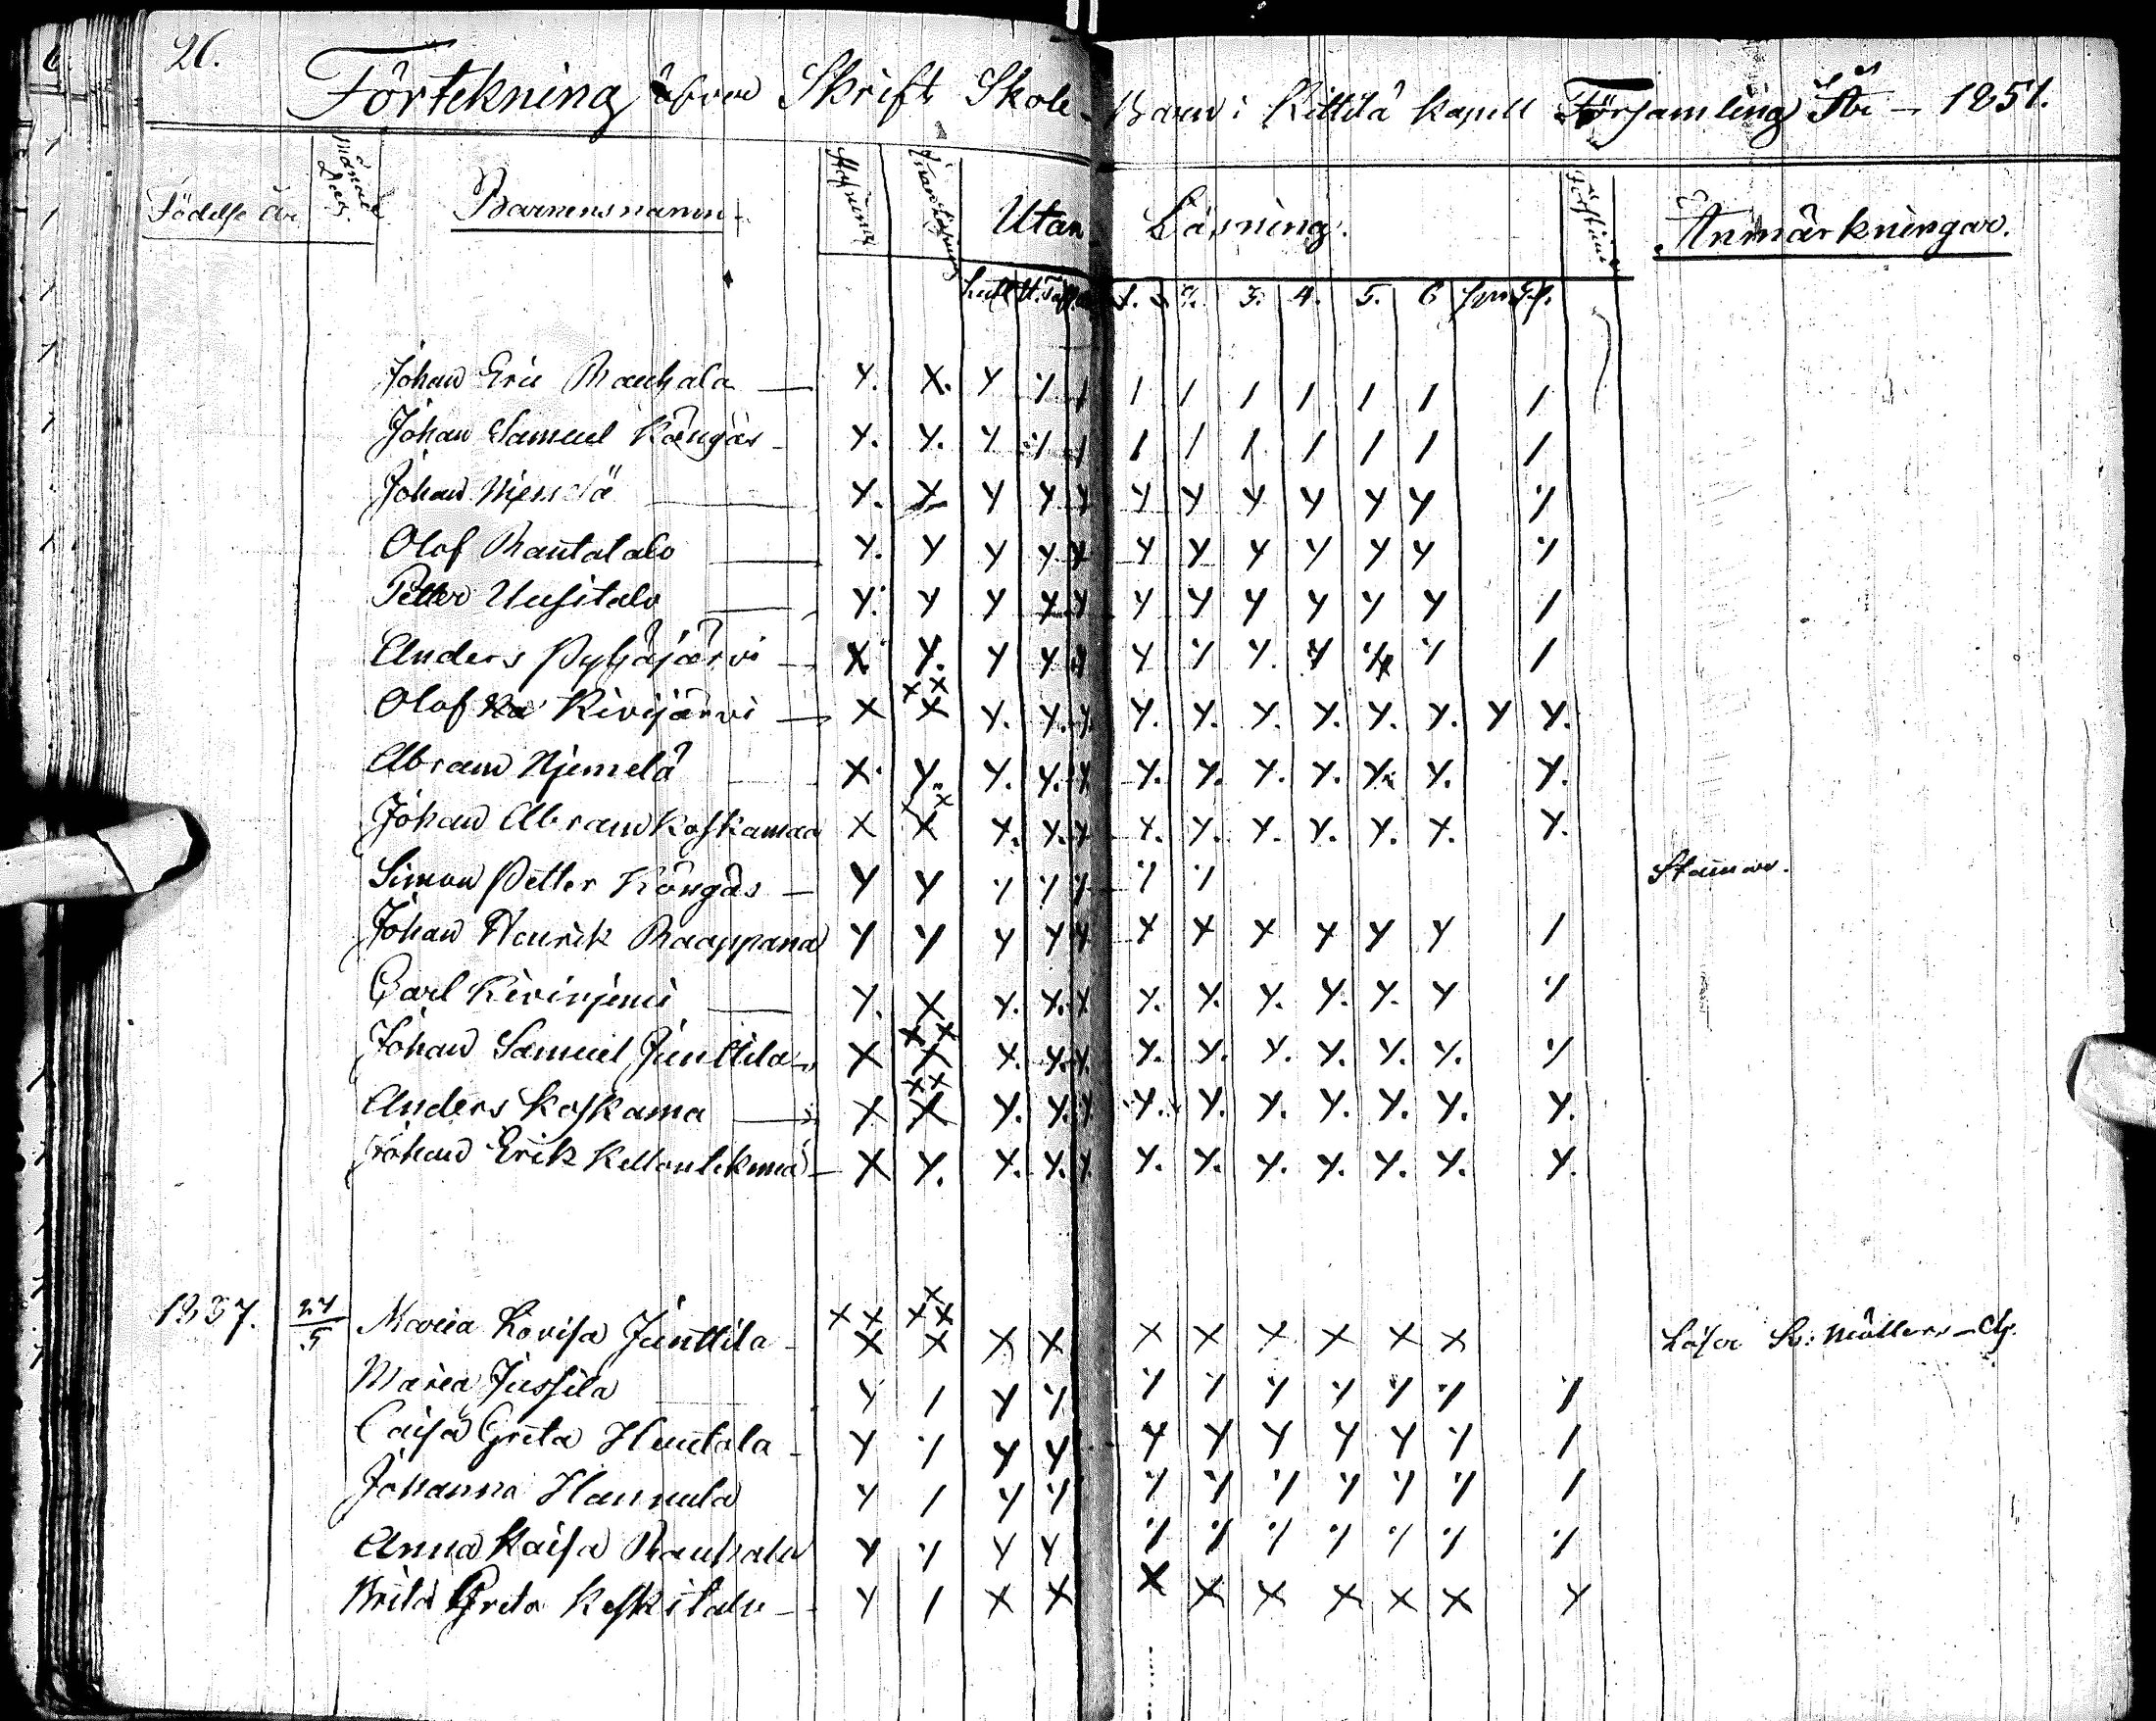 26.
Förtekning öfver Skrift Skole-Barn i Kittilä kapell Församling År - 1851.
Födelse År Månad Dag Barnensnamn Utan Läsning. Anmärkningar.
1. 2. 3. 4. 5. 6
Johan Eric Rauhala — Y. X. Y ٪ / / / / / / / /
Johan Samuel Köngäs - Y. Y. Y ٪ / / / / / / / /
Johan Njemelä Y. Y Y Y Y Y Y Y Y Y Y ٪
Olof Rantatalo Y. Y Y Y Y Y Y Y Y Y Y ٪
Petter Uusitalo Y. Y Y Y Y Y Y Y Y Y Y /
Anders Pyhäjärvi X Y. Y Y Y Y ٪ Y. Y ٪ ٪ /
Olof Kivijärvi — X X Y. Y. Y. Y. Y. Y. Y. Y. Y. Y Y.
Abram Njemelä X. Y. Y. Y. Y Y. Y. Y. Y. Y. Y. Y.
Johan Abram Koskamaa X X Y. Y. Y Y. Y. Y. Y. Y. Y. Y.
Simon Petter Köngäs — Y Y ٪ ٪ ٪ ٪ ٪ Stammar.
Johan Henrik Raappana Y Y Y Y Y Y Y Y Y Y Y /
Carl Kivinjemi Y. X Y. Y. Y Y. Y. Y. Y. Y. Y ٪
Johan Samuel Junttila X X Y. Y. Y. Y. Y. Y. Y. Y. Y. ٪
Anders Koskama X X Y. Y. Y Y. Y. Y. Y. Y. Y. Y.
Johan Erik Kellontekemä - X Y. Y. Y. Y. Y. Y. Y. Y. Y. Y. Y.
1837. 27/5 Maria Lovisa Junttila - X X X X X X X X X X Läser
Maria Jussila Y / Y ٪ ٪ ٪ ٪ ٪ ٪ ٪ ٪
Caisa Greta Huutala - Y ٪ Y Y Y Y Y Y Y ٪ /
Johanna Hannula Y / Y ٪ ٪ ٪ ٪ ٪ ٪ ٪ /
Anna Kaisa Rauhala Y ٪ Y Y ٪ ٪ ٪ ٪ ٪ ٪ ٪
Brita Greta Keskitalo - Y / X X X X X X X X Y